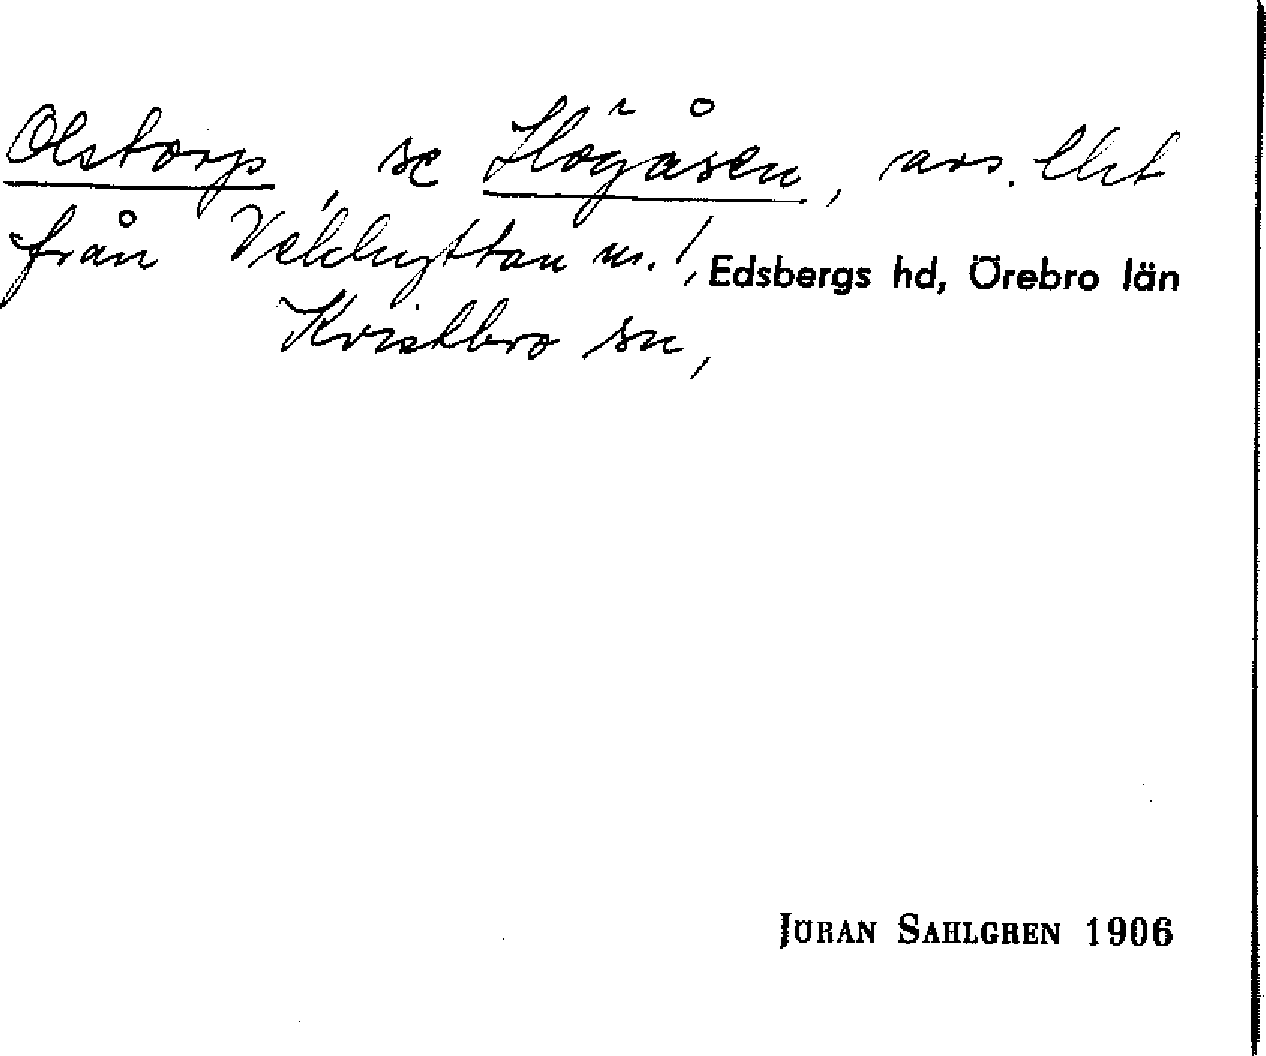 Olstorp, se Högåsen, avs. lht
från Vekhyttan nr. 1,
Edsbergs hd, Örebro län
Kvistbro sn,
JÖRAN SAHLGREN 1906